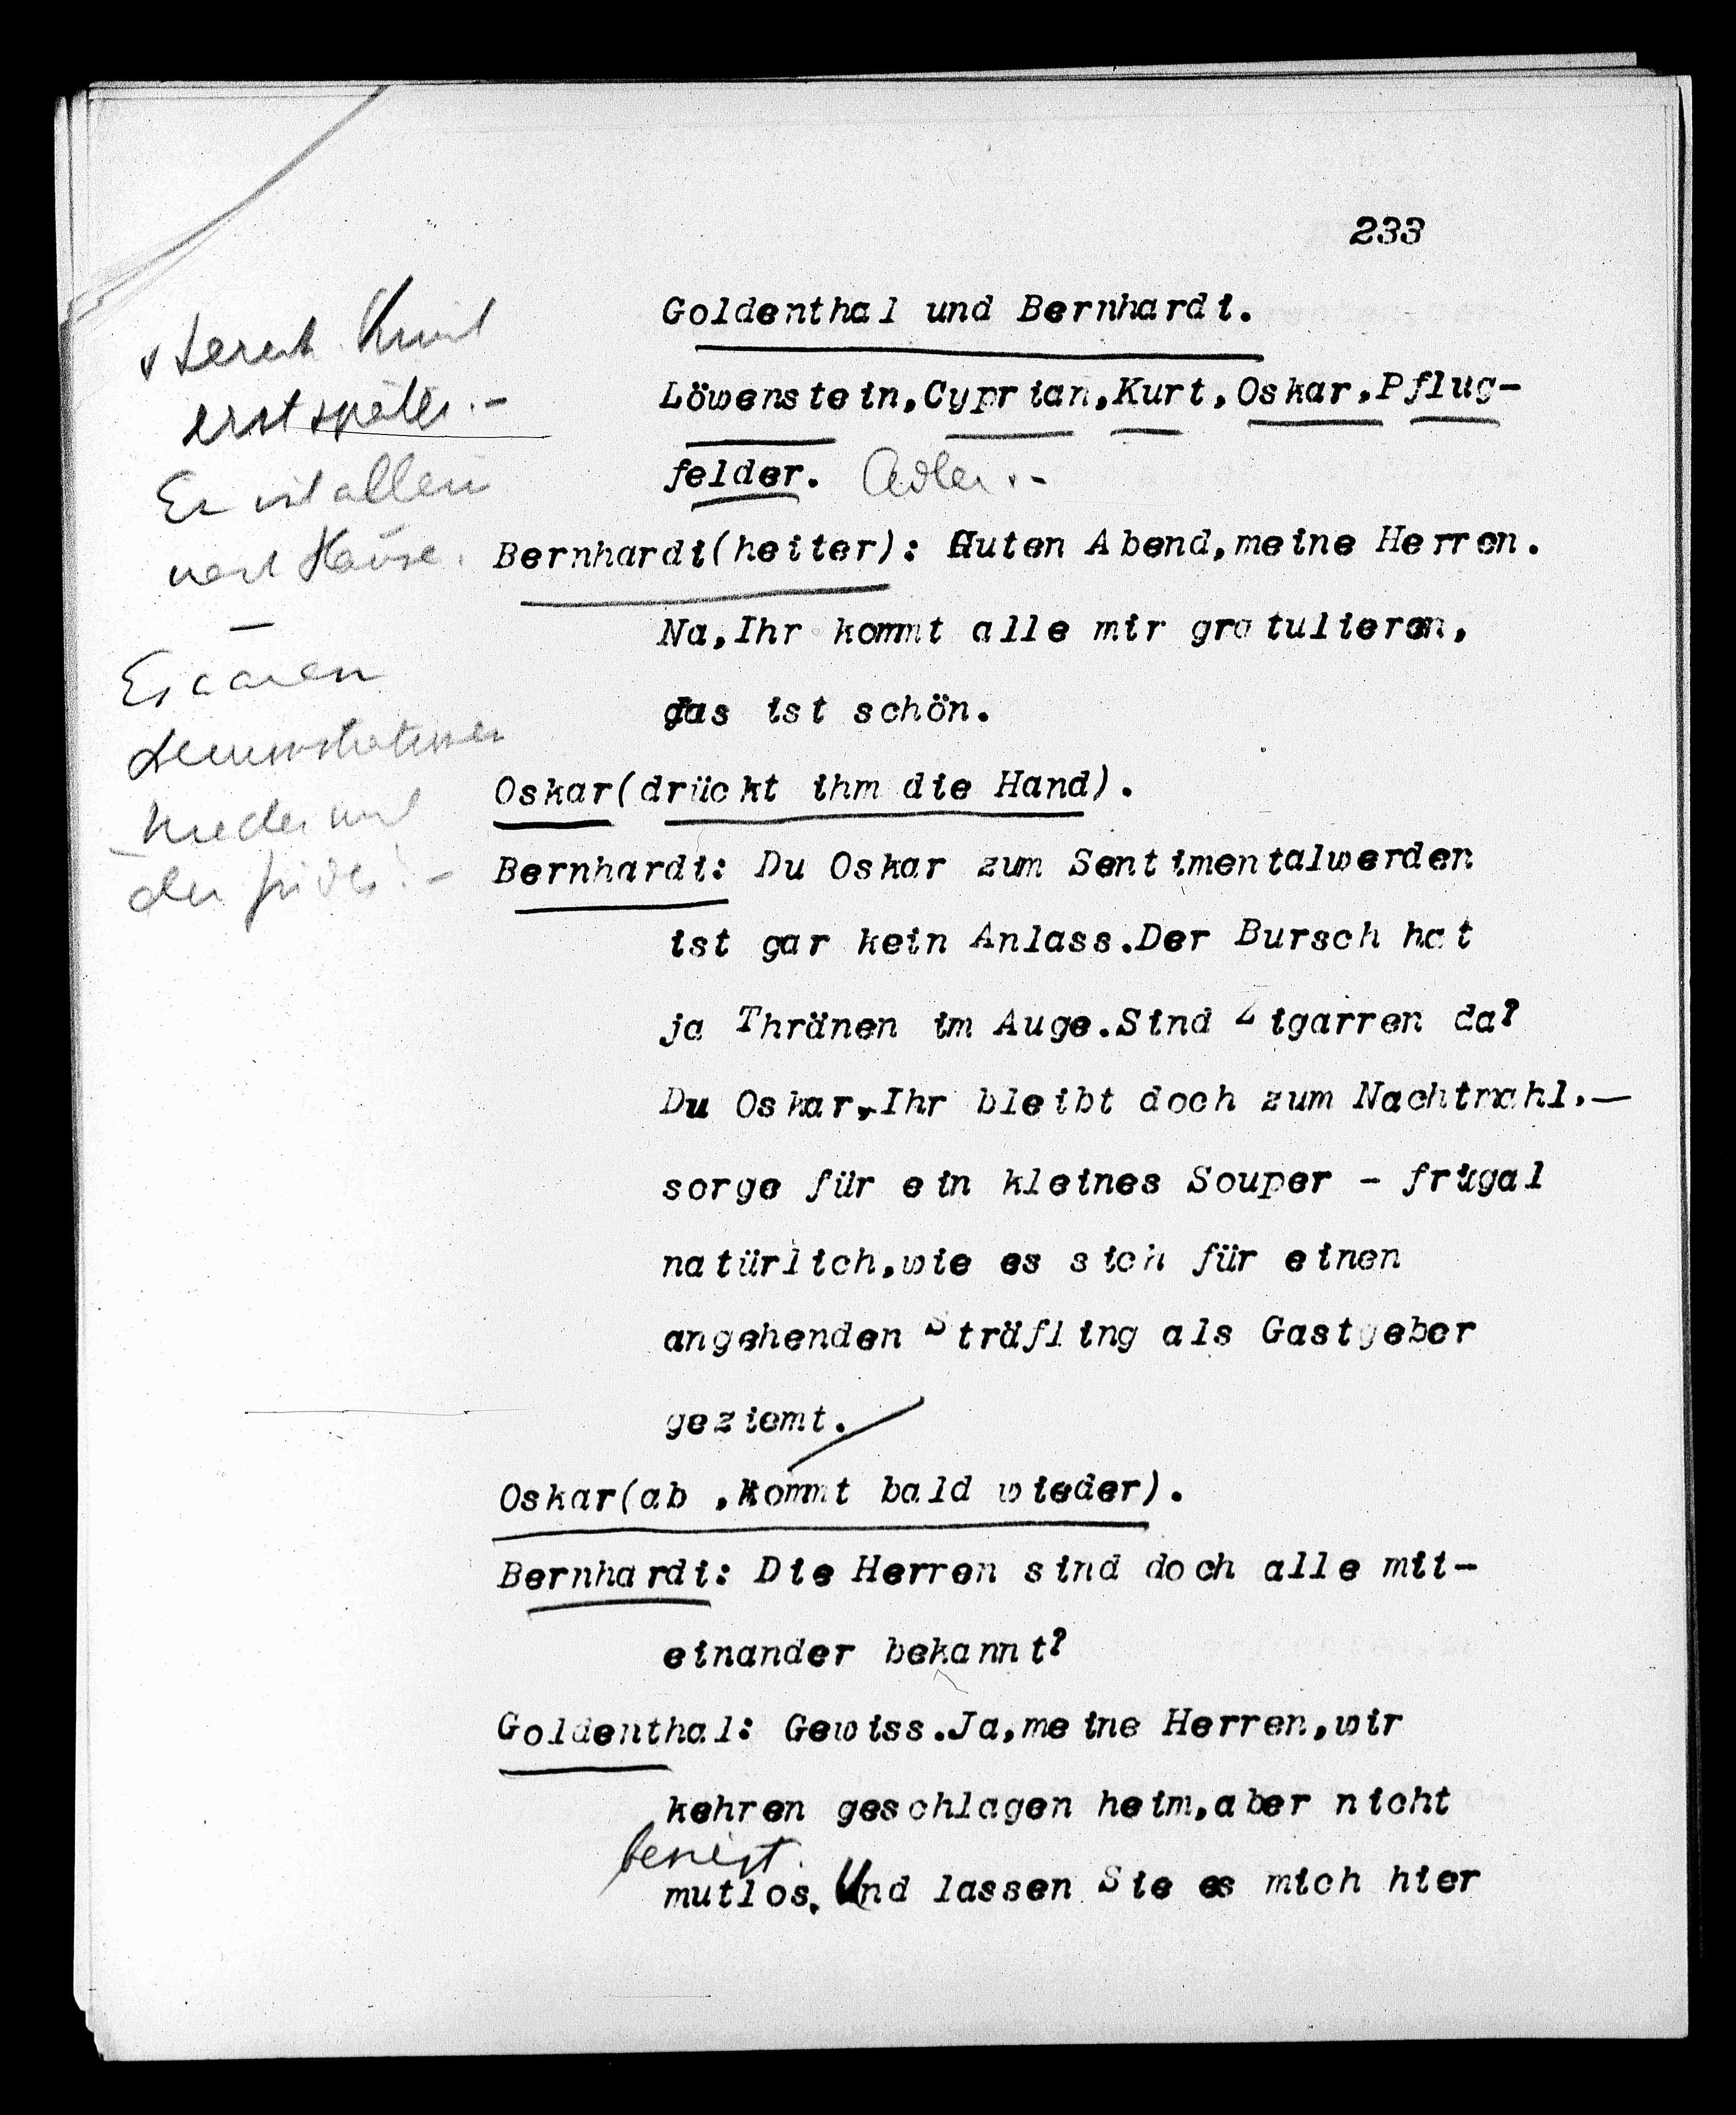 233
Goldenthal und Bernhardi.
Löwenstein,Cyprian,Kurt,Oskar,Pflug-
felder. Adler.-
erst später.-
Er ist allein
nach Hause.
Bernhardi(heiter): Guten Abend,meine Herren.
Na,Ihr kommt alle mir gratulieren,
das ist schön.
Es waren
Demonstrationen
Nieder mit
der Jude!-
Oskar(drückt ihm die Hand).
Bernhardi: Du Oskar zum Sentimentalwerden
ist gar kein Anlass.Der Bursch hat
ja Thränen im Auge.Sind Zigarren da?
Du Oskar,Ihr bleibt doch zum Nachtmahl.—
sorge für ein kleines Souper - frugal
natürlich,wie es sich für einen
angehenden Sträfling als Gastgeber
geziemt.
Oskar(ab ,kommt bald wieder).
Bernhardi: Die Herren sind doch alle mit-
einander bekannt?
Goldenthal: Gewiss.Ja,meine Herren,wir
kehren geschlagen heim,aber nicht
mutlos. Und lassen Sie es mich hier